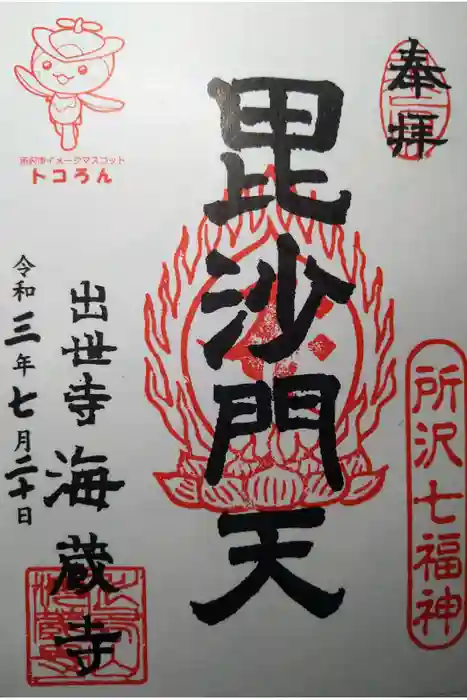 奉拝
所沢七福神
毘沙門天
出世寺 海蔵寺
令和三年七月二十日
所沢市イメージマスコット
トコろん